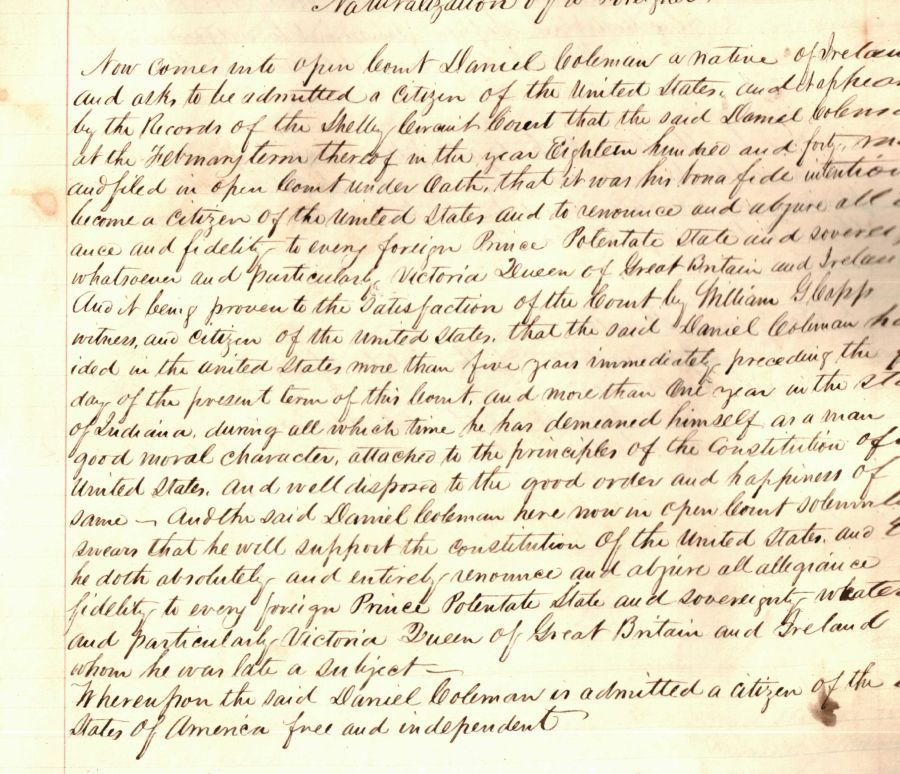 Naturalization of a Foreigner.
Now comes into open Court Daniel Coleman a native of Irelan
and asks to be admitted a Citizen of the United States. and it appear
by the Records of the Shelby Circuit Court that the said Daniel Colema
at the February term thereof in the year Eighteen hundred and forty
and filed in open Court under Oath, that it was his bona fide intention
become a Citizen of the United States and to renounce and abjure all
ance and fidelity to every foreign Prince Potentate State and soverei
whatsoever and particularly Victoria Queen of Great Britain and Irelan
And it being proven to the Satisfaction of the Court by William G Capp
witness, and Citizen of the United States, that the said Daniel Coleman ha
ided in the United States more than five years immediately preceding the
day of the present term of this Court, and more than One year in the Sta
of Indiana, during all which time he has demeaned himself as a man
good moral character, attached to the principles of the Constitution of
United States, and well disposed to the good order and happiness of
same — And the said Daniel Coleman here now in open Court solemnl
swears that he will support the Constitution Of the United States, and
he doth absolutely and entirely renounce and abjure all allegiance
fidelity to every foreign Prince Potentate State and sovereignty whates
and particularly Victoria Queen of Great Britain and Ireland
whom he was late a subject —
Whereupon the said Daniel Coleman is admitted a Citizen of the
States Of America free and independent